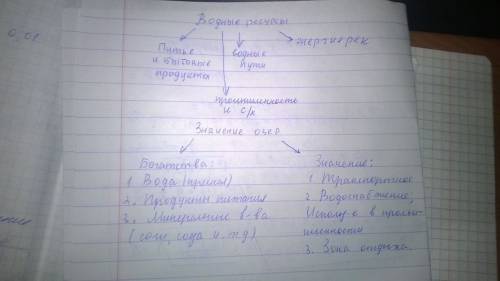 Водные ресурсы
Питье и бытовые продукты
водные пути
энергия рек
промышленность и с/х
Значение озер
Богатства:
1. Вода (пресны)
2. Продукты питания
3. Минеральные в-ва
(соли, сода и т.д)
Значение:
1. Транспортное
2. Водоснабжение,
Использ-е в промы-
шленности
3. Зона отдыха.